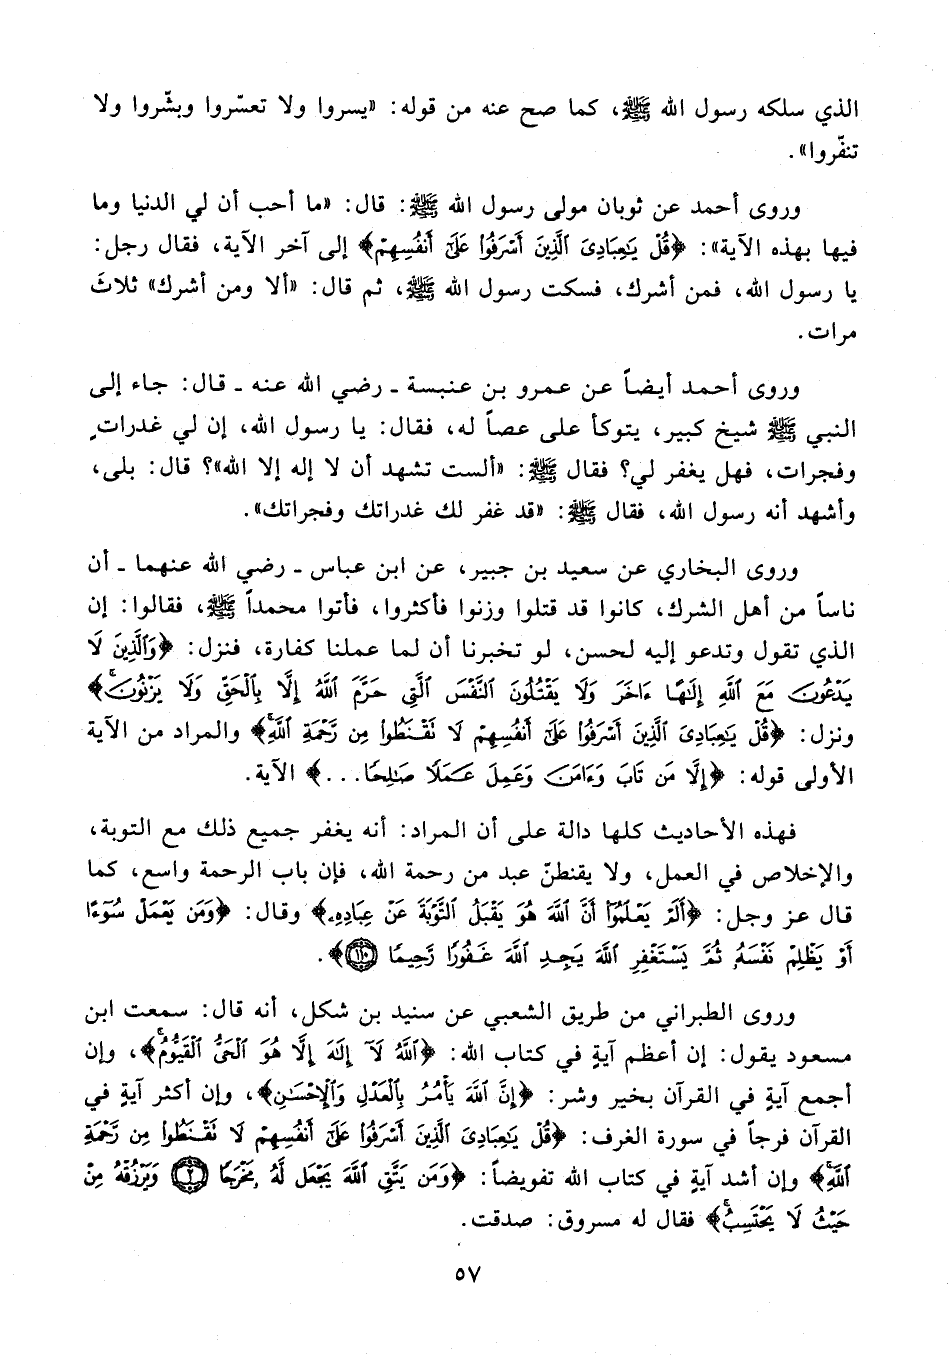 الذي سلكه رسول الله ﷺ، كما صح عنه من قوله: «يسروا ولا تعسّروا وبشّروا ولا
تنفّروا».
وروى أحمد عن ثوبان مولى رسول الله ﷺ: قال: «ما أحب أن لي الدنيا وما
فيها بهذه الآية»: ﴿قُلْ يَٰعِبَادِىَ ٱلَّذِينَ أَسْرَفُوا۟ عَلَىٰٓ أَنفُسِهِمْ﴾ إلى آخر الآية، فقال رجل:
يا رسول الله، فمن أشرك، فسكت رسول الله ﷺ، ثم قال: «ألا ومن أشرك» ثلاثَ
مرات.
وروى أحمد أيضاً عن عمرو بن عنبسة ـ رضي الله عنه ـ قال: جاء إلى
النبي ﷺ شيخ كبير، يتوكأ على عصاً له، فقال: يا رسول الله، إن لي غدراتٍ
وفجرات، فهل يغفر لي؟ فقال ﷺ: «ألست تشهد أن لا إله إلا الله»؟ قال: بلى،
وأشهد أنه رسول الله، فقال ﷺ: «قد غفر لك غدراتك وفجراتك».
وروى البخاري عن سعيد بن جبير، عن ابن عباس ـ رضي الله عنهما ـ أن
ناساً من أهل الشرك، كانوا قد قتلوا وزنوا فأكثروا، فأتوا محمداً ﷺ، فقالوا: إن
الذي تقول وتدعو إليه لحسن، لو تخبرنا أن لما عملنا كفارة، فنزل: ﴿وَٱلَّذِينَ لَا
يَدْعُونَ مَعَ ٱللَّهِ إِلَٰهًا ءَاخَرَ وَلَا يَقْتُلُونَ ٱلنَّفْسَ ٱلَّتِى حَرَّمَ ٱللَّهُ إِلَّا بِٱلْحَقِّ وَلَا يَزْنُونَ ۚ﴾
ونزل: ﴿قُلْ يَٰعِبَادِىَ ٱلَّذِينَ أَسْرَفُوا۟ عَلَىٰٓ أَنفُسِهِمْ لَا تَقْنَطُوا۟ مِن رَّحْمَةِ ٱللَّهِ ۚ﴾ والمراد من الآية
الأولى قوله: ﴿إِلَّا مَن تَابَ وَءَامَنَ وَعَمِلَ عَمَلًا صَٰلِحًا...﴾ الآية.
فهذه الأحاديث كلها دالة على أن المراد: أنه يغفر جميع ذلك مع التوبة،
والإخلاص في العمل، ولا يقنطنّ عبد من رحمة الله، فإن باب الرحمة واسع، كما
قال عز وجل: ﴿أَلَمْ يَعْلَمُوٓا۟ أَنَّ ٱللَّهَ هُوَ يَقْبَلُ ٱلتَّوْبَةَ عَنْ عِبَادِهِۦ﴾ وقال: ﴿وَمَن يَعْمَلْ سُوٓءًا
أَوْ يَظْلِمْ نَفْسَهُۥ ثُمَّ يَسْتَغْفِرِ ٱللَّهَ يَجِدِ ٱللَّهَ غَفُورًا رَّحِيمًا ١١٠﴾.
وروى الطبراني من طريق الشعبي عن سنيد بن شكل، أنه قال: سمعت ابن
مسعود يقول: إن أعظم آيةٍ في كتاب الله: ﴿ٱللَّهُ لَآ إِلَٰهَ إِلَّا هُوَ ٱلْحَىُّ ٱلْقَيُّومُ ۚ﴾، وإن
أجمع آيةٍ في القرآن بخير وشر: ﴿إِنَّ ٱللَّهَ يَأْمُرُ بِٱلْعَدْلِ وَٱلْإِحْسَٰنِ﴾، وإن أكثر آيةٍ في
القرآن فرجاً في سورة الغرف: ﴿قُلْ يَٰعِبَادِىَ ٱلَّذِينَ أَسْرَفُوا۟ عَلَىٰٓ أَنفُسِهِمْ لَا تَقْنَطُوا۟ مِن رَّحْمَةِ
ٱللَّهِ ۚ﴾ وإن أشد آيةٍ في كتاب الله تفويضاً: ﴿وَمَن يَتَّقِ ٱللَّهَ يَجْعَل لَّهُۥ مَخْرَجًا ٢ وَيَرْزُقْهُ مِنْ
حَيْثُ لَا يَحْتَسِبُ ۚ﴾ فقال له مسروق: صدقت.
٥٧